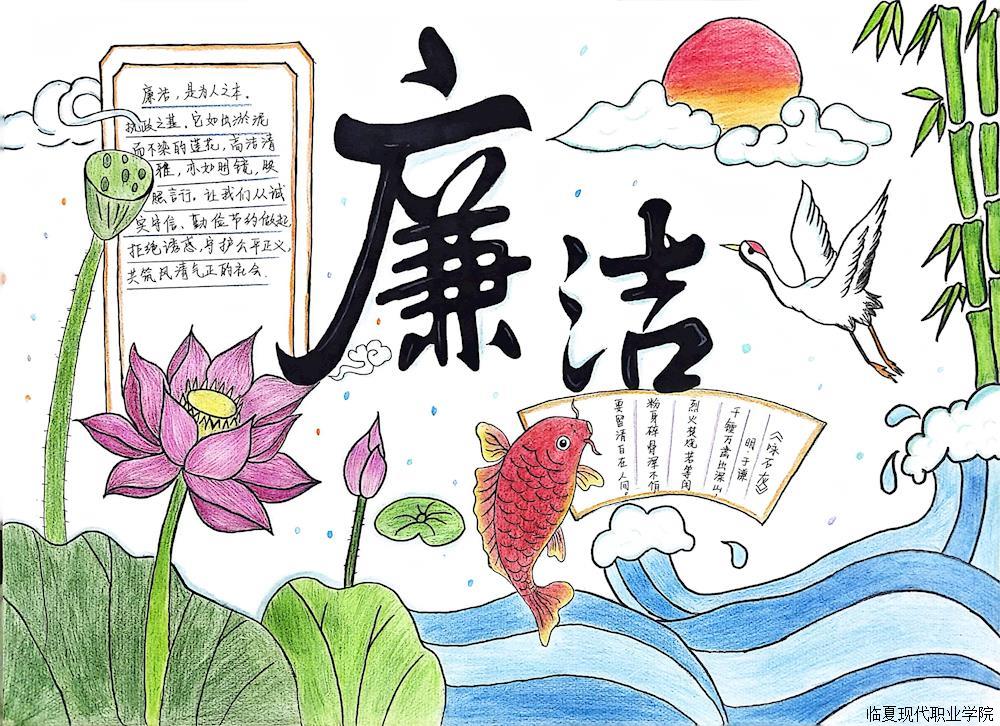 廉洁，是为人之本。
执政之基。它如出淤泥
而不染的莲花，高洁清
雅，亦如明镜，映
照言行。让我们从诚
实守信、勤俭节约做起
拒绝诱惑，守护公平正义，
共筑风清气正的社会。
廉洁
《咏石灰》
明·于谦
千锤万凿出深山
烈火焚烧若等闲
粉身碎骨浑不怕
要留清白在人间。
临夏现代职业学院